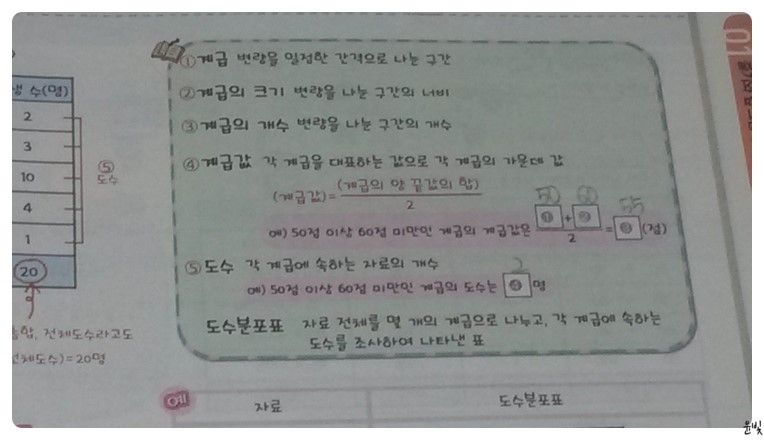 생 수(명)
2
3
10
4
1
20
⑤
도수
총합, 전체도수라고도
전체도수)=20명
① 계급 변량을 일정한 간격으로 나눈 구간
② 계급의 크기 변량을 나눈 구간의 너비
③ 계급의 개수 변량을 나눈 구간의 개수
④ 계급값 각 계급을 대표하는 값으로 각 계급의 가운데 값
(계급값)=(계급의 양 끝값의 합)
2
50 60 55
예) 50점 이상 60점 미만인 계급의 계급값은 ❶+❷ = ❸ (점)
2
⑤ 도수 각 계급에 속하는 자료의 개수
예) 50점 이상 60점 미만인 계급의 도수는 ❹ 명
도수분포표 자료 전체를 몇 개의 계급으로 나누고, 각 계급에 속하는
도수를 조사하여 나타낸 표
예
자료 도수분포표
01
윤빛